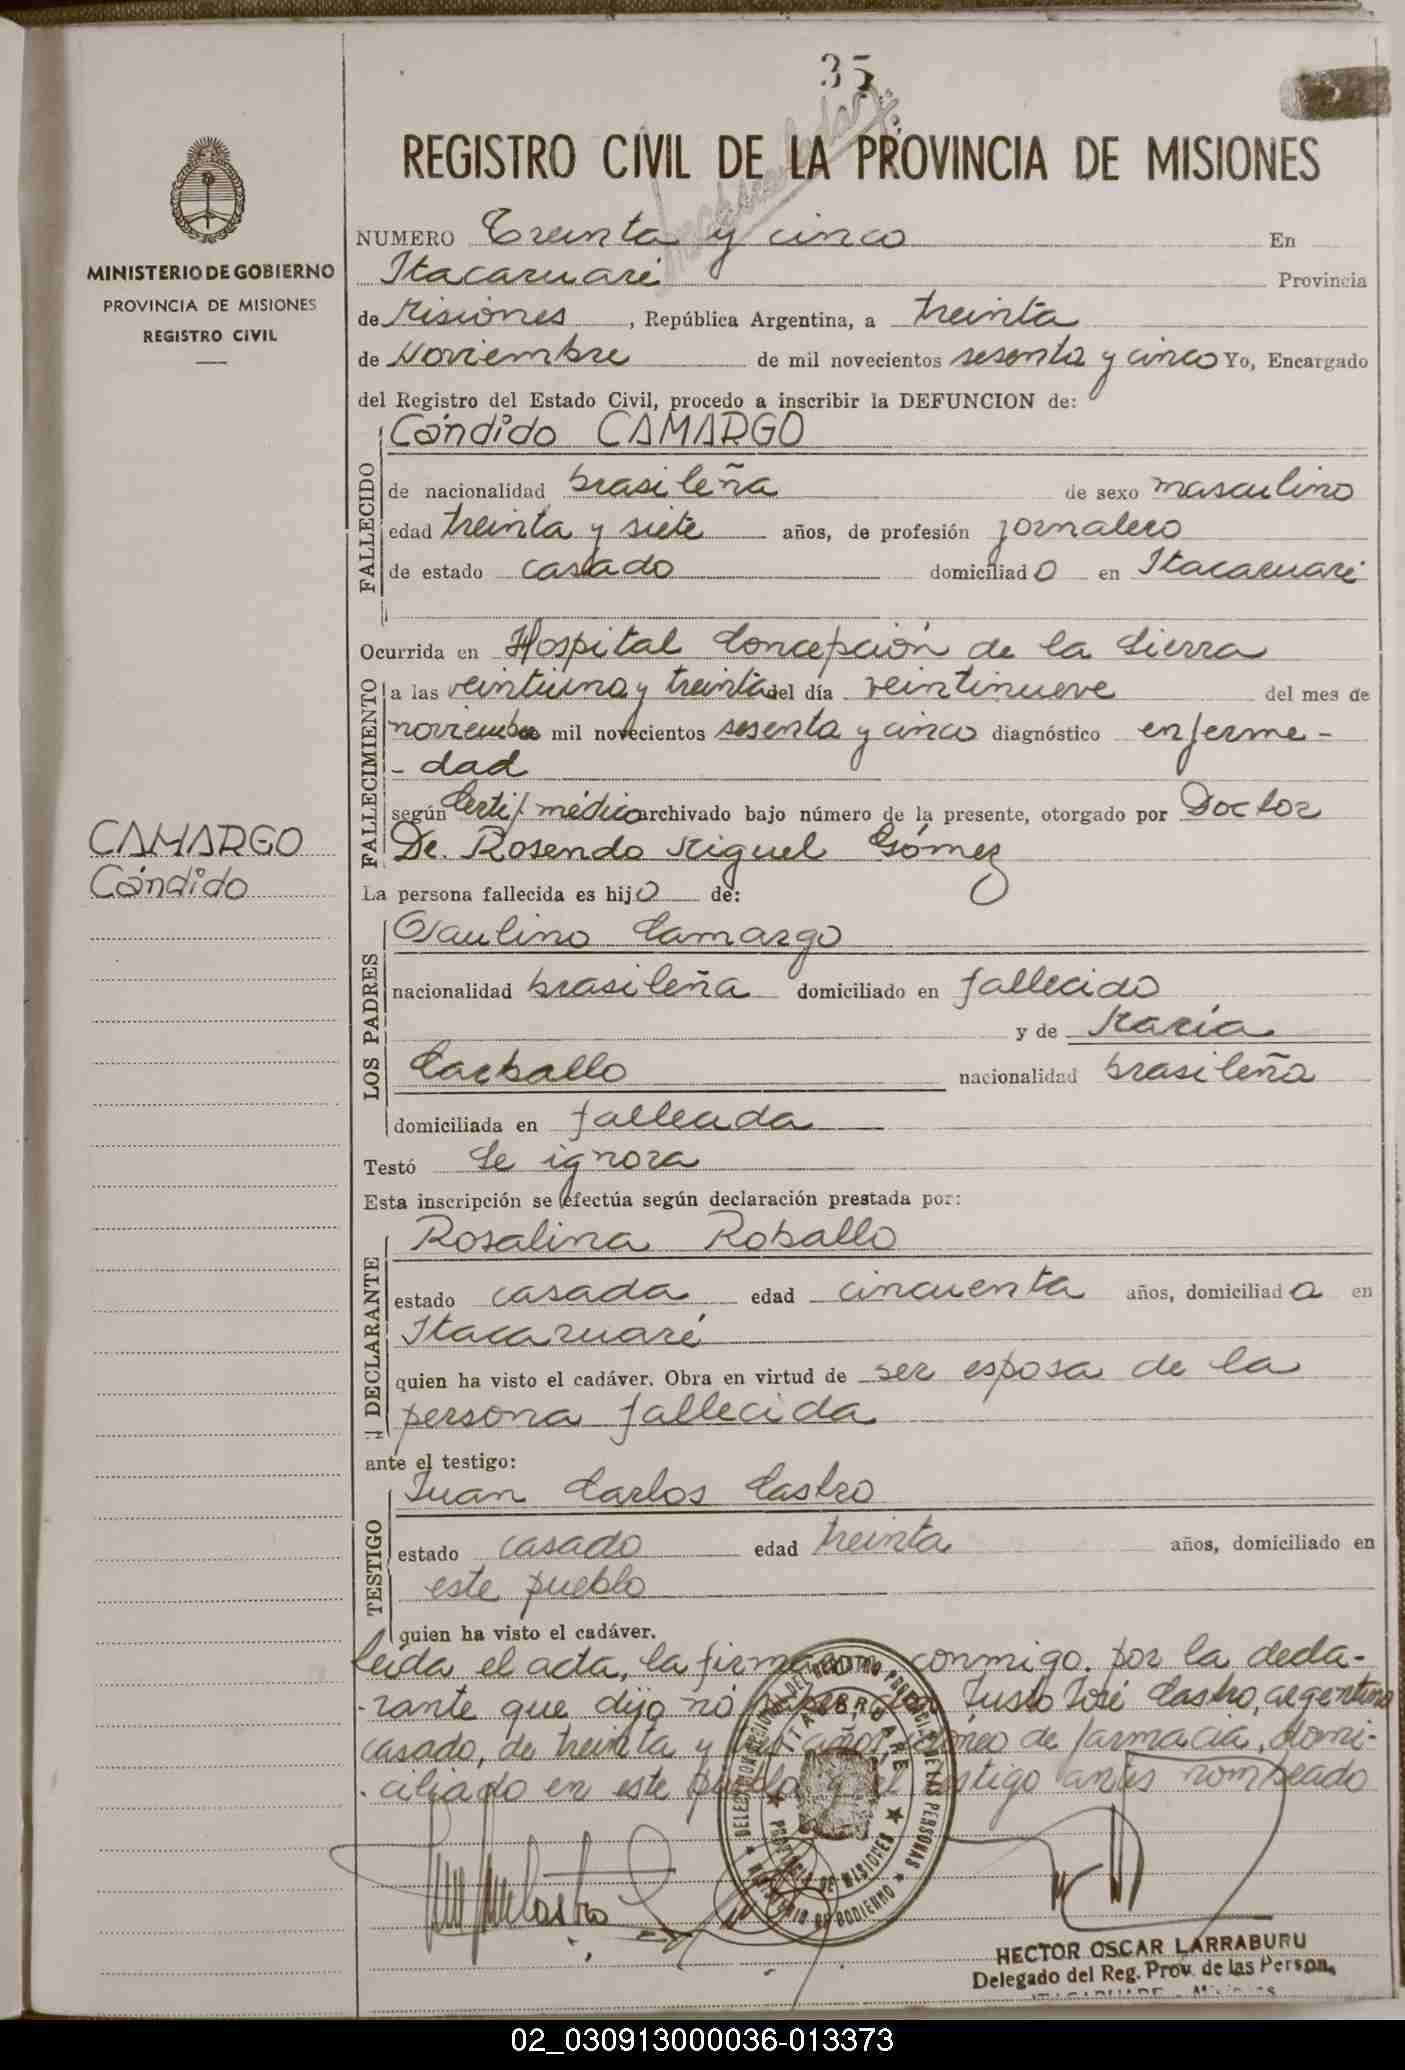 35
REGISTRO CIVIL DE LA PROVINCIA DE MISIONES
MINISTERIO DE GOBIERNO
PROVINCIA DE MISIONES
REGISTRO CIVIL
NUMERO Treinta y cinco En
Itacaruaré Provincia
de Misiones, República Argentina, a treinta
de Noviembre de mil novecientos sesenta y cinco Yo, Encargado
del Registro del Estado Civil, procedo a inscribir la DEFUNCION de:
Cándido CAMARGO
FALLECIDO
de nacionalidad brasileña de sexo masculino
edad treinta y siete años, de profesión jornalero
de estado casado domiciliado en Itacaruaré
Ocurrida en Hospital Concepción de la Sierra
FALLECIMIENTO
a las veintiuna y treinta del día veintinueve del mes de
noviembre mil novecientos sesenta y cinco diagnóstico enferme-
-dad
según Certif médico archivado bajo número de la presente, otorgado por Doctor
De. Rosendo Miguel Gómez
CAMARGO
Cándido
La persona fallecida es hijo de:
LOS PADRES
Paulino Camargo
nacionalidad brasileña domiciliado en fallecido
y de María
Carballo nacionalidad brasileña
domiciliada en fallecida
Testó Se ignora
Esta inscripción se efectúa según declaración prestada por:
DECLARANTE
Rosalina Roballo
estado casada edad cincuenta años, domiciliada en
Itacaruaré
quien ha visto el cadáver. Obra en virtud de ser esposa de la
persona fallecida
ante el testigo:
TESTIGO
Juan Carlos Castro
estado casado edad treinta años, domiciliado en
este pueblo
quien ha visto el cadáver.
Leída el acta, la firman conmigo, por la decla-
-rante que dijo no Justo José Castro, argentino
casado, de treinta y años, de farmacia, domi-
-ciliado en este pueblo y el testigo antes nombrado
DELEGACION DEL REGISTRO PROVINCIAL DE LAS PERSONAS
ITACARUARE
PROVINCIA DE MISIONES
MINISTERIO DE GOBIERNO
HECTOR OSCAR LARRABURU
Delegado del Reg. Prov. de las Person.
ITACARUARE - Misiones
02_030913000036-013373